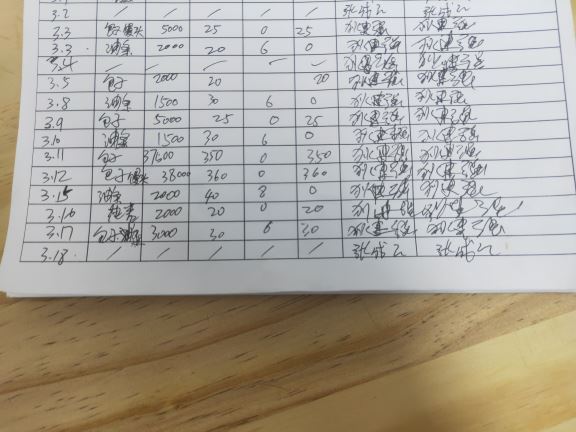 3.2 / / / / / 张成云 张成云
3.3 包子馒头 5000 25 0 25 孙建强 孙建强
3.3. 油条 2000 20 6 0 孙建强 孙建强
3.4 / / / / / 孙建强 孙建强
3.5 包子 2000 20 20 孙建强 孙建强
3.8 油条 1500 30 6 0 孙建强 孙建强
3.9 包子 5000 25 0 25 孙建强 孙建强
3.10 油条 1500 30 6 0 孙建强 孙建强
3.11 包子 37500 350 0 350 孙建强 孙建强
3.12 包子馒头 38000 360 0 360 孙建强 孙建强
3.15 油条 2000 40 8 0 孙建强 孙建强
3.16 2000 20 0 20 孙建强 孙建强
3.17 包子油条 3000 30 6 30 孙建强 孙建强
3.18. / / / / / 张成云 张成云